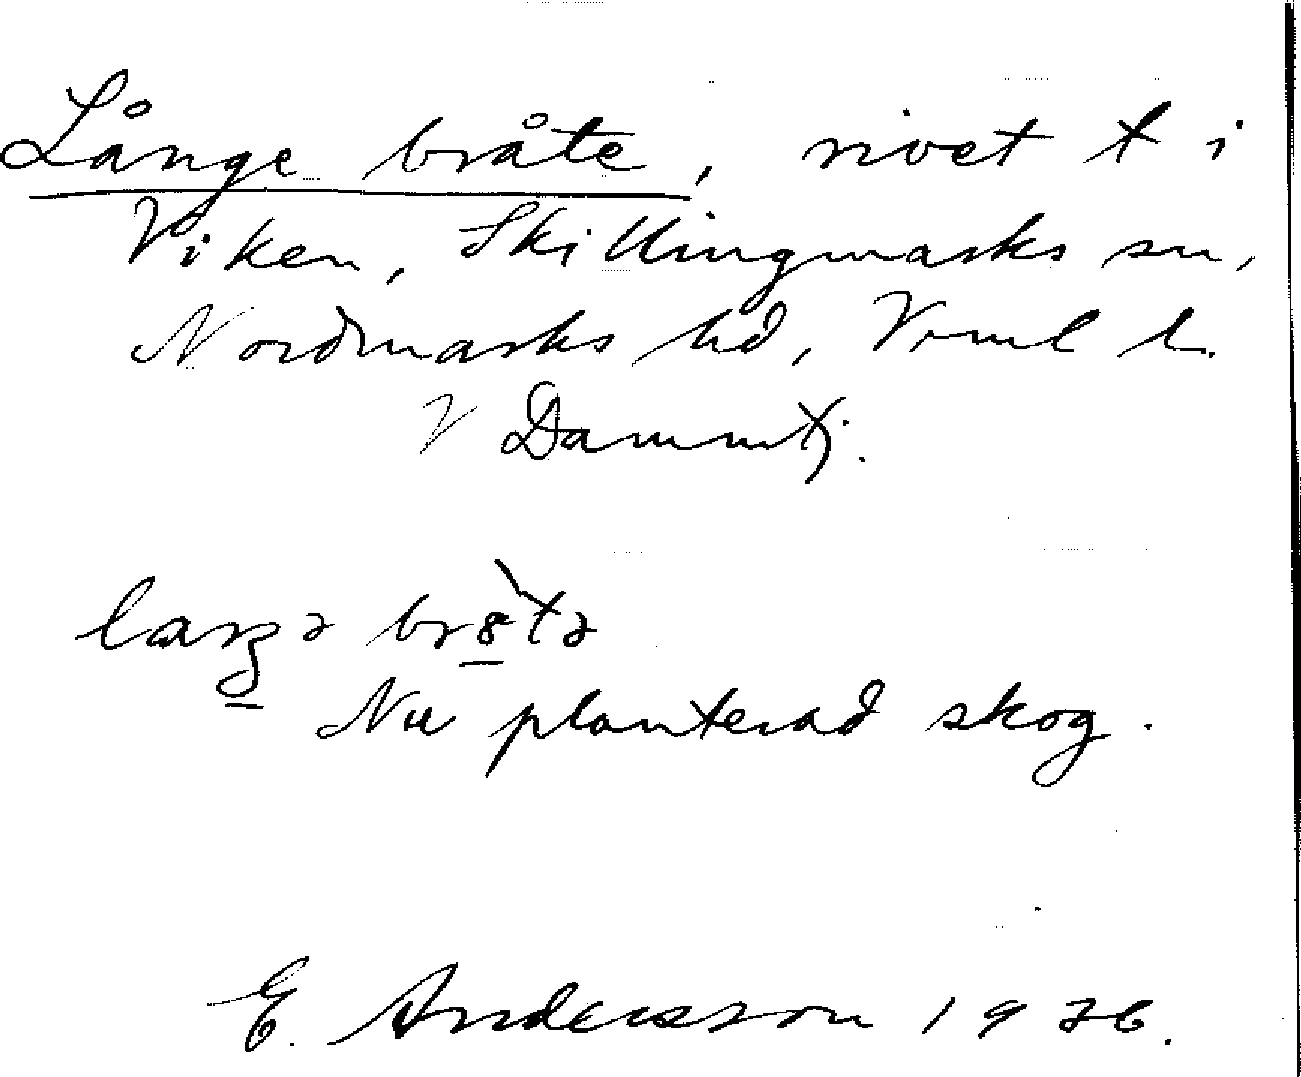 Långe bråte, rivet t i
Viken, Skillingmarks sn,
Nordmarks hd, Vrml l.
V Dammtj.
Nu planterad skog.
E. Andersson 1926.